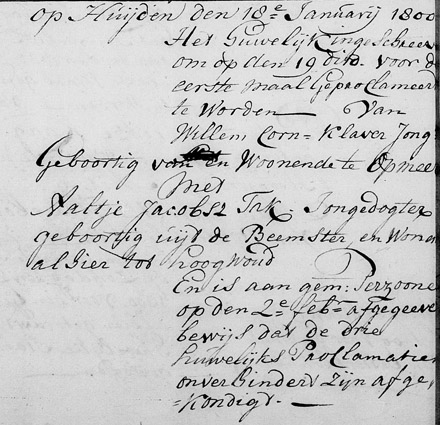 op Huijden den 18e Januarij 1800
Het Huwelijk ingeschreev
om op den 19 dito voor de
eerste maal Geproclameert
te Worden — Van
Willem Corn= Klaver Jong
Geboortig van en Woonende te Opmeer
met
Aaltje Jacobsz Tak. Jongedogter
geboortig uijt de Beemster, en Wonen
alhier tot hoogWoud
En is aan gem: Perzoone
op den 2e febr afgegeeve
bewijs dat de drie
huwelijks Proclamatien
onverhindert Zijn afge,
=kondigt. —